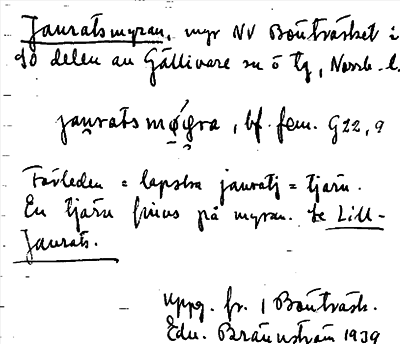 Jauratsmyran, myr NV Bønträsket i
sö delen av Gällivare sn ö tg, Norrb. l.
jau̯ratsmǿ̨gra, bf. fem. G22, 9
Förleden = lapska jauratj = tjärn.
En tjärn finns på myran. Se Lill-
Jaurats.
Uppg. fr. Bönträsk.
Edv. Brännström 1939